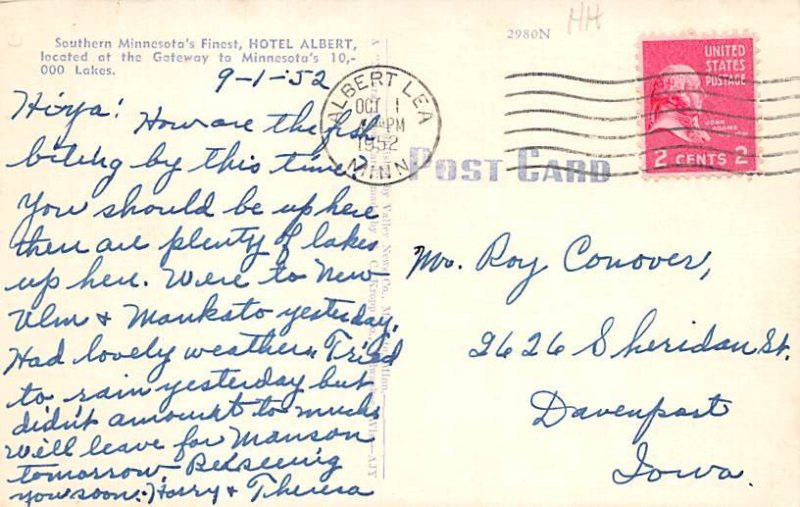 Southern Minnesota's Finest, HOTEL ALBERT,
located at the Gateway to Minnesota's 10,-
000 Lakes.
9-1-'52
Hiya!
How are the fish
biting by this time?
You should be up here
there are plenty of lakes
up here. Were to New
Ulm & Mankato yesterday,
Had lovely weather. Tried
to rain yesterday but
didn't amount to much
Will leave for Manson
tomorrow. Be seeing
you soon. Harry & Theresa
2980N
HH
ALBERT LEA
OCT 1
PM
1952
MINN
UNITED
STATES
POSTAGE
JOHN
ADAMS
2 CENTS 2
POST CARD
Mr. Roy Conover,
2626 Sheridan St.
Davenport
Iowa.